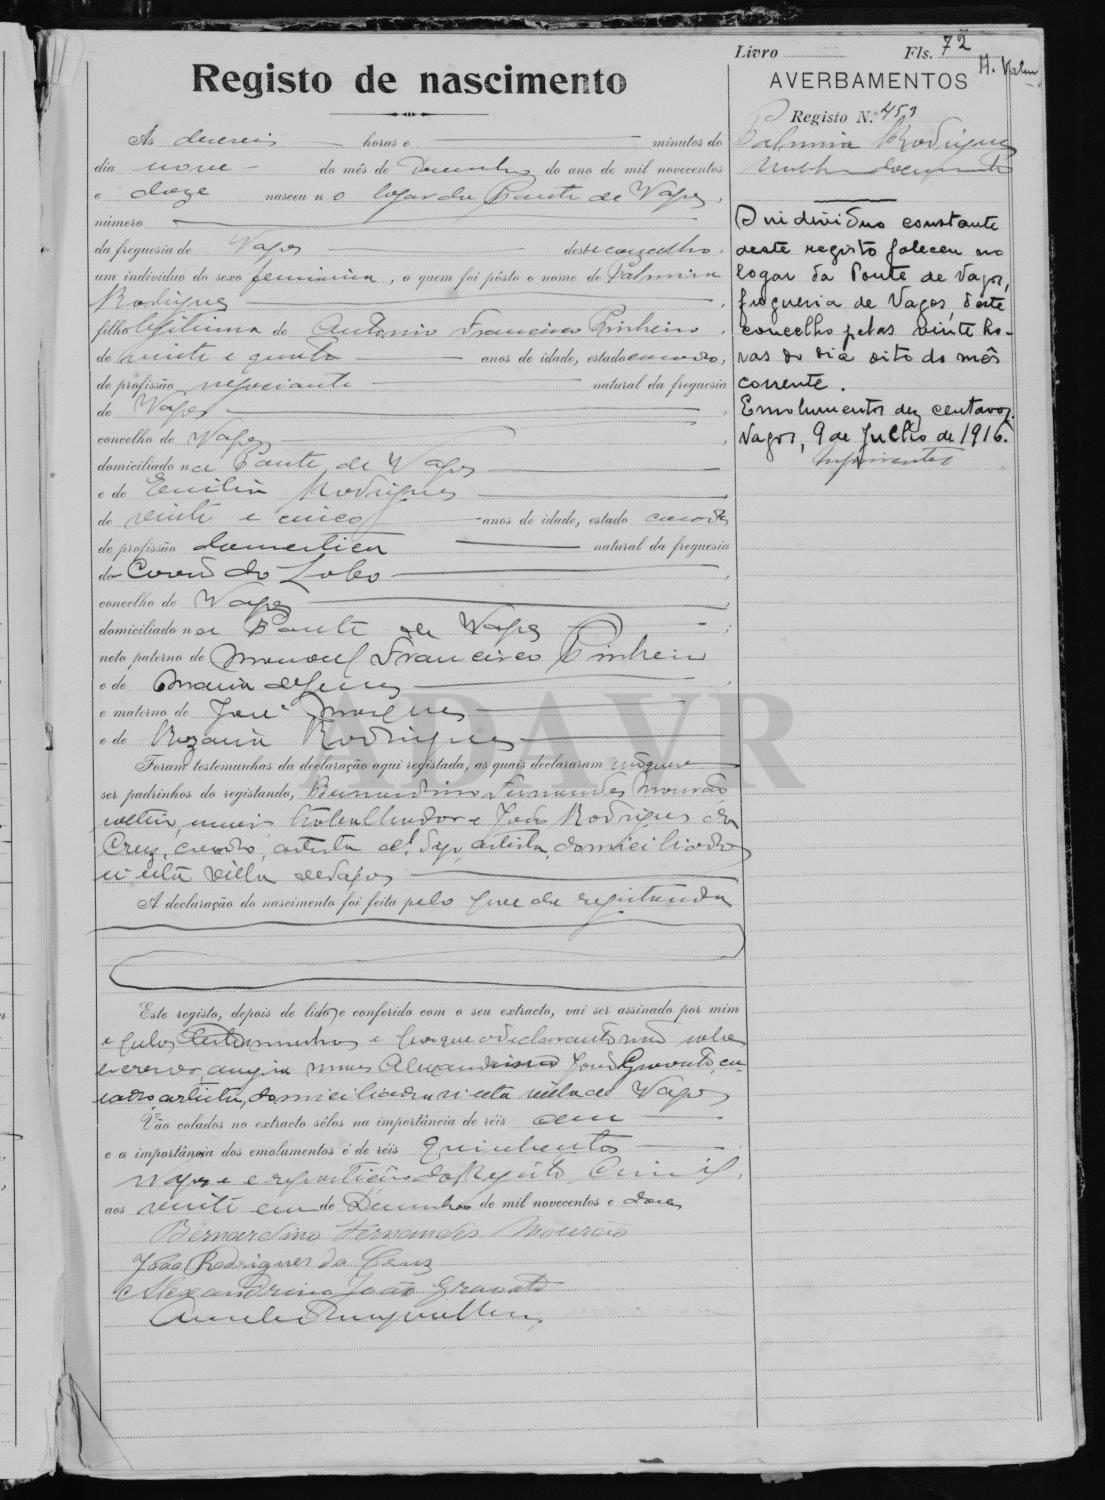 Livro Fls. 72
Registo de nascimento
AVERBAMENTOS
Registo N.º 453
Palmira Rodrigues
Às horas e minutos do
dia nove do mês de Dezembro do ano de mil novecentos
e doze nasceu n o logar da Ponte de Vagos,
número
da freguesia de Vagos deste concelho.
um indivíduo do sexo feminino, a quem foi pôsto o nome de Palmira
Rodrigues
filho legitima de Antonio Francisco Pinheiro,
de vinte e quatro anos de idade, estado casado,
de profissão negociante natural da freguesia
de Vagos
concelho de Vagos
domiciliado na Ponte de Vagos
e de Emilia Rodrigues
de vinte e cinco anos de idade, estado casada
de profissão domestica natural da freguesia
da Covão do Lobo
concelho de Vagos
domiciliado na Ponte de Vagos
neto paterno de Manoel Francisco Pinheiro
e de Maria de Jesus
e materno de José Marques
e de Rozaria Rodrigues
Foram testemunhas da declaração aqui registada, as quais declararam
ser padrinhos do registando, Bernardino Fernandes Mourão
trabalhador e João Rodrigues da
Cruz, casado, artista, domiciliados
n'esta villa de Vagos
A declaração do nascimento foi feita pelo pae da registanda
Este registo, depois de lido e conferido com o seu extracto, vai ser assinado por mim
e pelas testemunhas e porque o declarante não sabe
escrever, assigna Alexandrino João Gravato, ca-
sado artista, domiciliado n'esta villa de Vagos
Vão colados no extracto sêlos na importância de réis cem
e a importância dos emolumentos é de réis quinhentos
Vagos e repartição do Registo Civil,
aos vinte e um de Dezembro de mil novecentos e doze
Bernardino Fernandes Mourão
João Rodrigues da Cruz
Alexandrino João Gravato
O individuo constante
deste registo faleceu no
logar da Ponte de Vagos,
freguesia de Vagos, deste
concelho pelas vinte ho-
ras do dia oito do mês
corrente.
Emolumentos dez centavos.
Vagos, 9 de Julho de 1916.
ADAVR